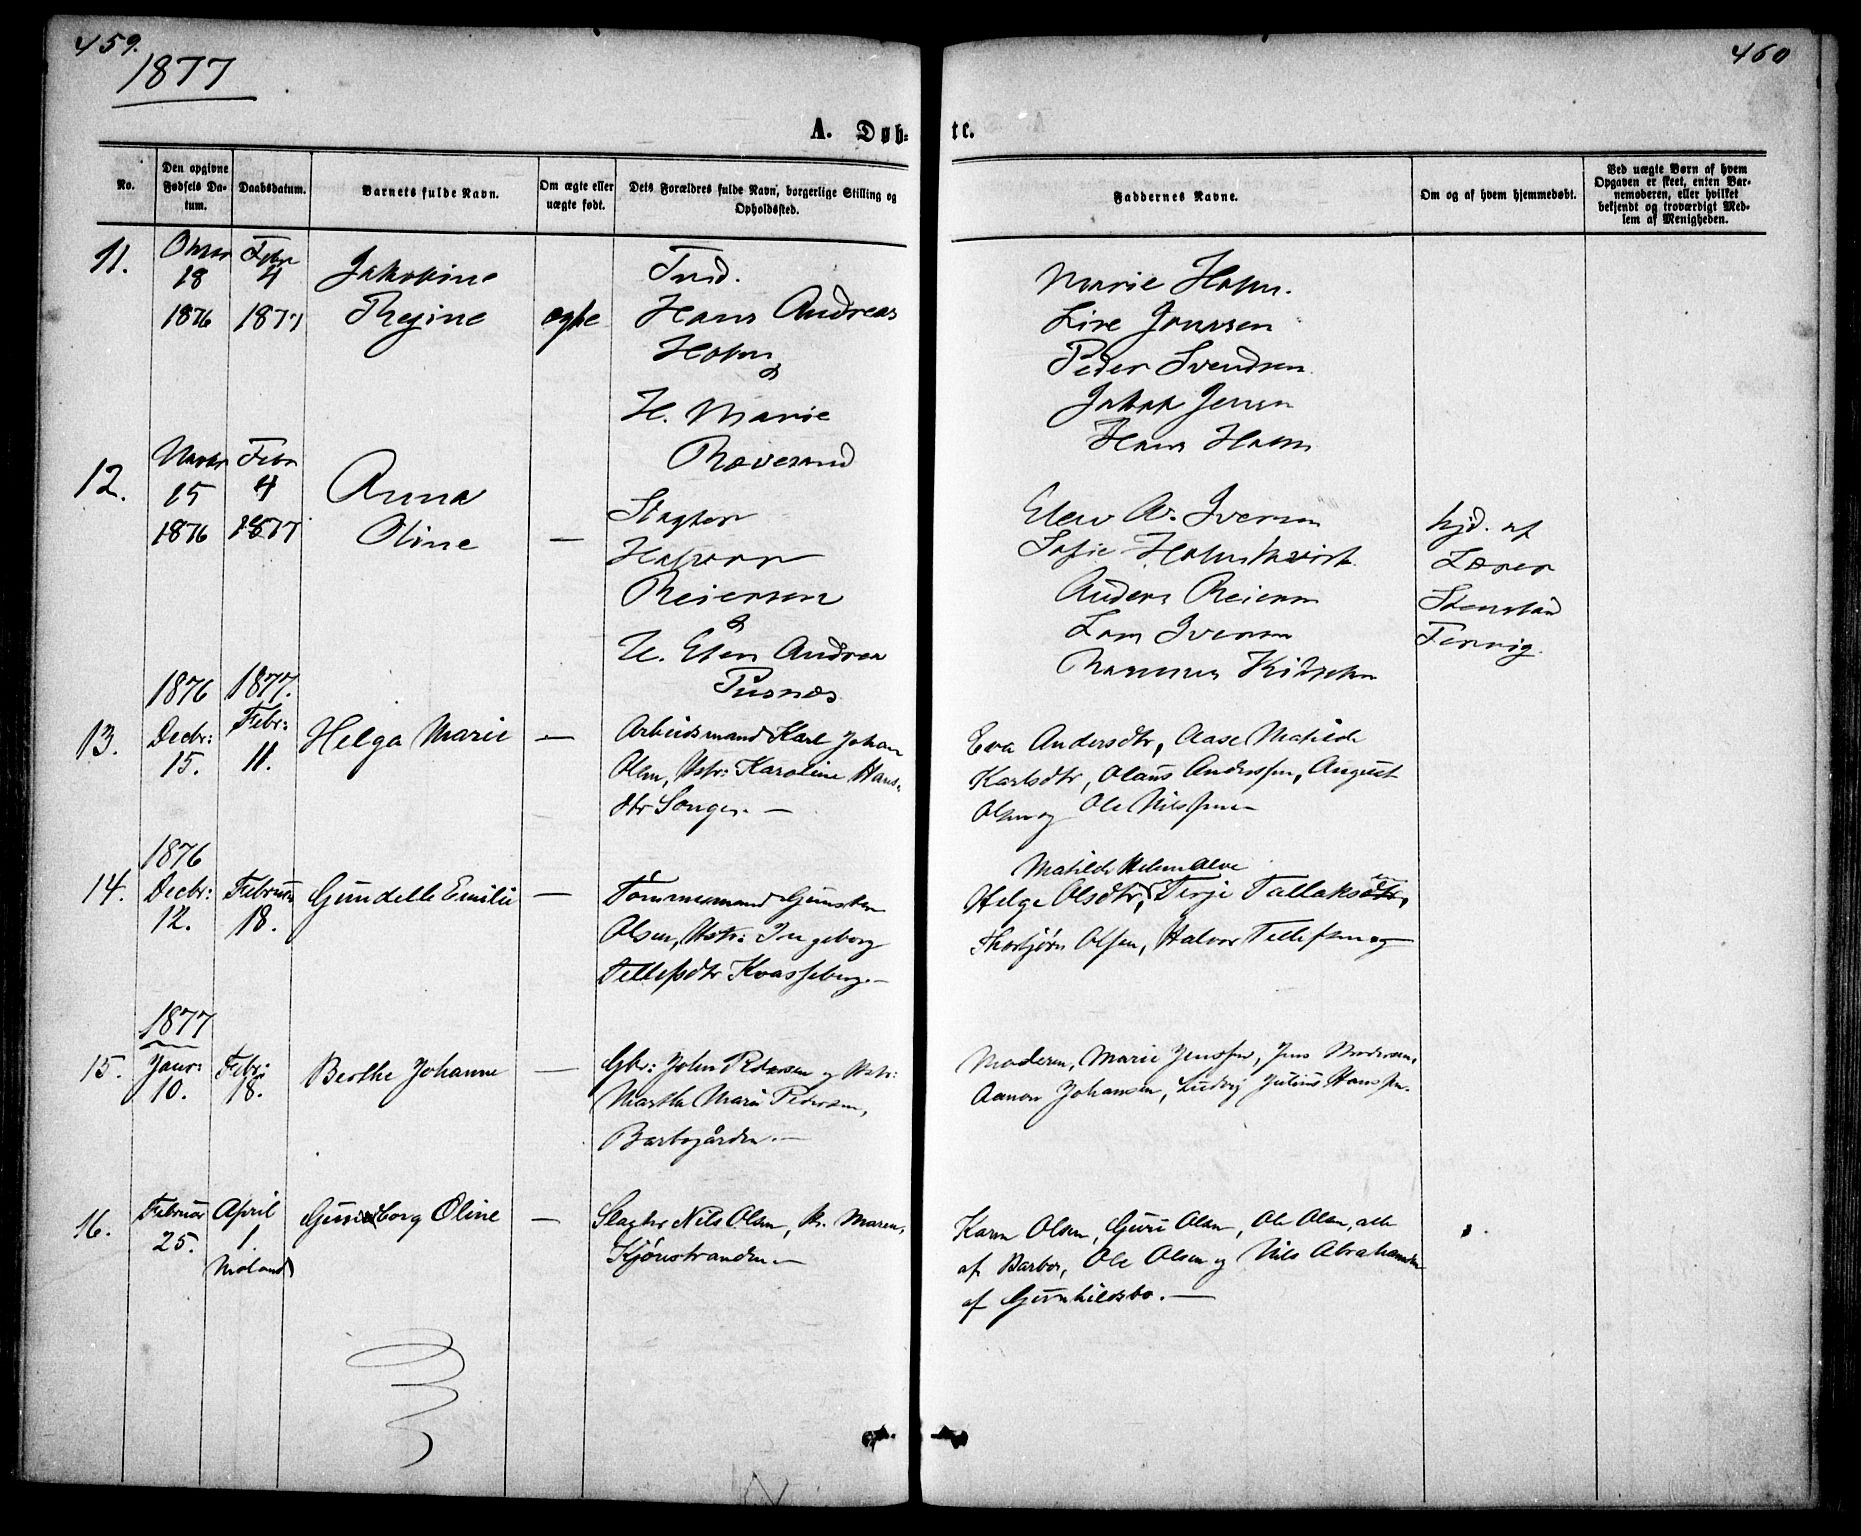 459.
460
1877
A. Døb=
te.
No.
Den opgivne Fødsels Datum.
Daabsdatum.
Barnets fulde Navn.
Om ægte eller uægte født.
Dets Forældres fulde Navn, borgerlige Stilling og Opholdssted.
Faddernes Navne.
Om og af hvem hjemmedøbt.
Ved uægte Børn af hvem
Opgaven er skeet, enten Bar-
nemoderen, eller hvilket
bekjendt og troværdigt Med-
lem af Menigheden.
11.
18
1876
Febr
4
1877
Jakobine
Regine
ægte
Hans Andreas
Holm
&
H. Marie
Røvesand
Marie Holm.
Line Jonssen
Peder Svendsen
Jakob Jensen
Hans Holm
12.
Novbr
15
1876
Febr
4
1877
Anna
Oline
—
Halvor
Reiersen
&
H. Elen Andrea
Pusnes
Elen A. Iversen
Sofie Holmkvist
Anders Reiersen
Lars Iversen
hjd. af
Lærer
13.
1876
Decbr:
15.
1877.
Febr:
11.
Helga Marie
—
Arbeidsmand Karl Johan
Olsen, Hstr: Karoline Hans-
dtr Songe. —
Eva Andersdtr, Aase Matilde
Karlsdtr, Olaus Anderssen, August
Olsen og Ole Nilssen
14.
1876
Decbr:
12.
Februar
18.
Gundelle Emilie
—
Tømmermand Gunsten
Olsen, Hstr: Ingeborg
Tellefsdtr Kvasseberg. —
Matilde Helene Alve
Helge Olsdtr, Terje Tallaksen,
Thorbjørn Olsen, Halvor Tellefsen og
15.
1877
Janr:
10.
Febr:
18.
Berthe Johanne
—
Gbr: John Pedersen og Hstr:
Marthe Marie Pedersen,
Barbogården. —
Moderen, Marie Jenssen, Jens
Aanon Johansen, Ludvig Julius Hanssen.
16.
Februar
25.
April
1.
Moland
Gunborg Oline
—
Slagter Nils Olsen, k. Maren,
Kjönstranden —
Karen Olsen, Guri Olsen, Ole Olsen, alle
af Barbo, Ole Olsen og Nils Abrahamsen
af Gunhildsbo. —